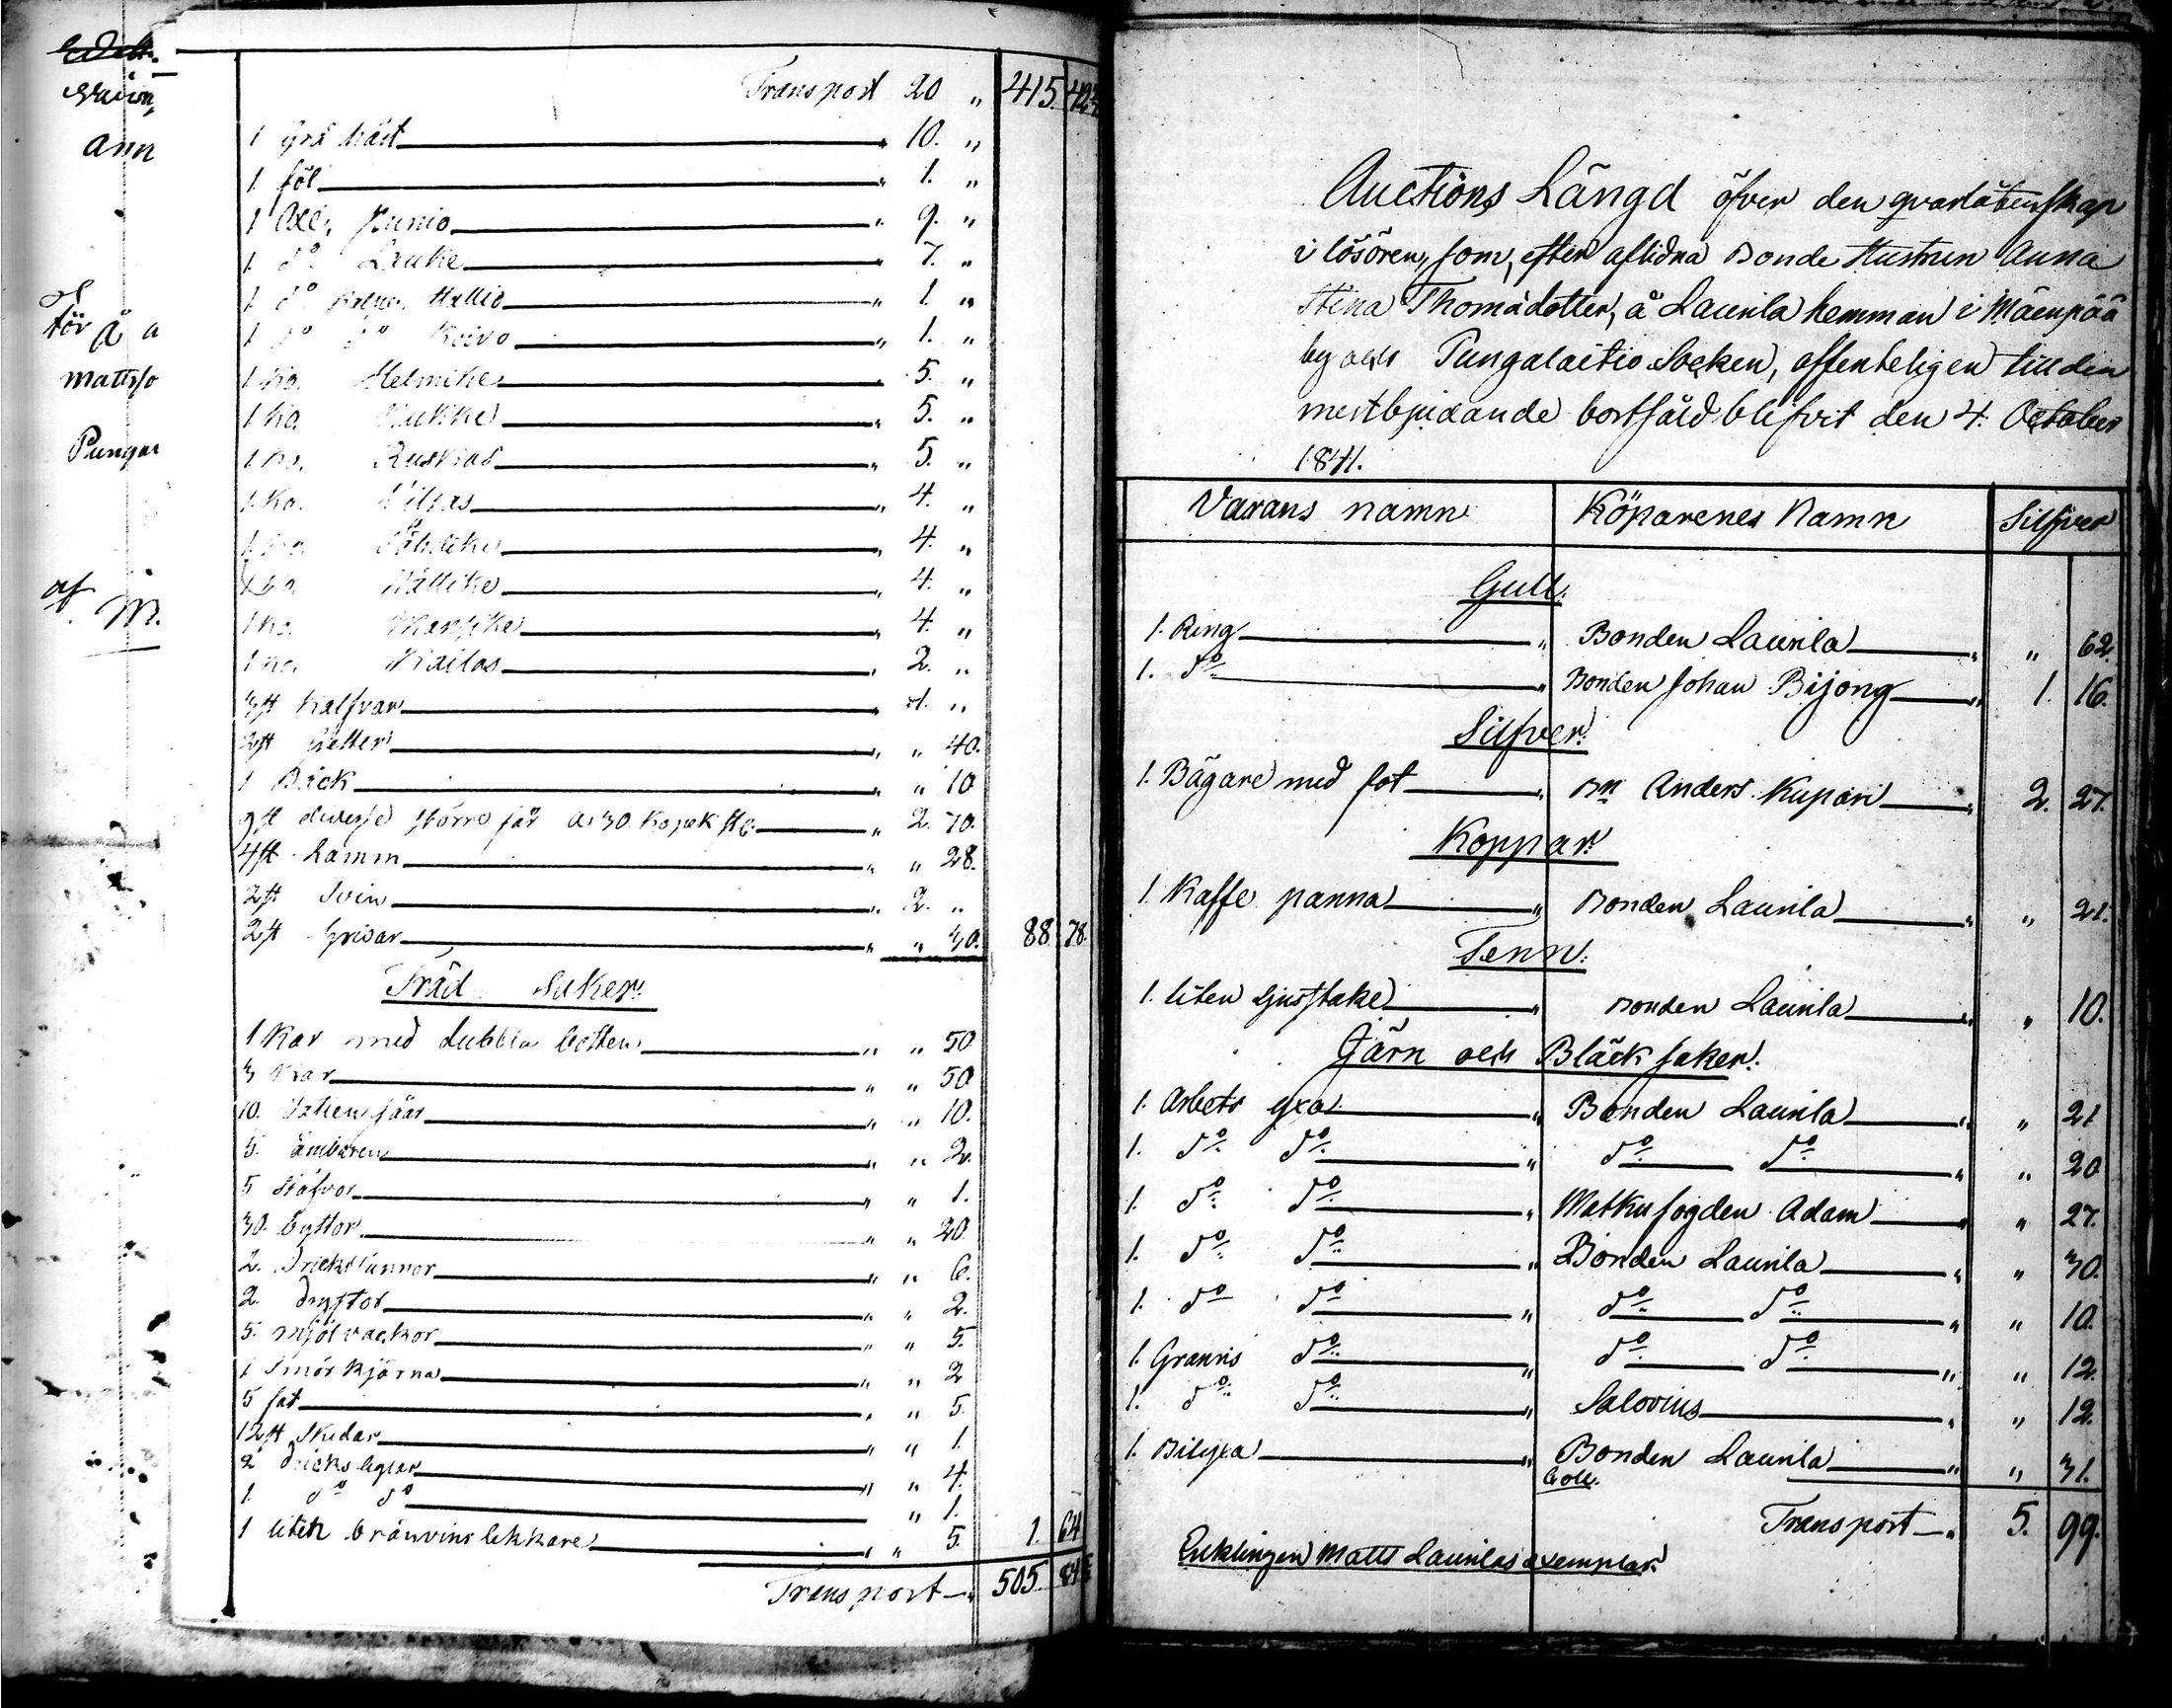 Ann
för å a
Mattsso
Pungal
af
M.
Transport 20 " 415. 42
1 Grå häst " 10. "
1. föl " 1. "
1 Oxe, Junio " 9. "
1. do Lauke " 7. "
1 do Hallio " 1. "
1 do do Koivo " 1. "
1 Ko. Helmike " 5. "
1 Ko. " 5. "
1 Ko. Ruskas " 5. "
1. Ko. " 4. "
1. Ko. " 4. "
" 4. "
1 Ko. Mansike " 4. "
1 Ko. " 2. "
3 st Kalfvar "
2 st Getter " " 40.
1 Bäck " " 10
9 st diverse större får a 30 Kopek st. " 2. 70.
4 st Lamm " " 28.
2 st Svin " 2. "
2 st Grisar " " 30. 88. 78.
Träd Saker.
1 Kar med dubbla botten " " 50
3 Kar " " 50
10. " " 10.
5. ämbaren " " 2.
5 Stäfvor " " 1.
30. byttor " " 20.
2. Drickstunnor " " 6.
2. Dryftor " " 2.
5. mjöl vackor " " 5.
1 Smör kjärna " " 2
5 fat " " 5.
12 st Skedar " " 1.
2 Dricks leglar " " 4.
1. do do " " 1.
1 liten bränvins lekkare " " 5. 1. 64
Transport " 505. 84
Auctions Längd öfver den qvarlåtenskap
i lösören, som, efter aflidna Bonde Hustrun Anna
Stina Thomädotter, å Laurila hemman i Mäenpää
by och Pungalaitio Socken, offenteligen till den
mestbjudande bortsåld blifvit den 4. October
1841.
Varans namn Köparenes Namn Silfver
Gull.
1. Ring " Bonden Laurila " " 62.
1. do " Bonden Johan Bijong " 1. 16.
Silfver.
1. Bägare med fot " Bn Anders Kupari " 2. 27.
Koppar.
1. Kaffe panna " Bonden Laurila " " 21.
Tenn.
1. liten ljusstake " Bonden Laurila " " 10.
Järn och Bläck saker.
1. Arbets yxa " Bonden Laurila " " 21
1. do do " do do " " 20
1. do do " Matkufogden Adam " " 27.
1. do do " Bonden Laurila " " 30.
1. do do " do do " " 10.
1. Granris do " do do " " 12.
1. do do " Salovius " " 12.
1. Bilyxa " Bonden Laurila " " 31.
Coll.
Transport " 5. 99.
Enklingen Matts Laurilas exemplar.